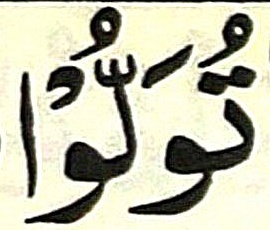 تُوَلُّوْا